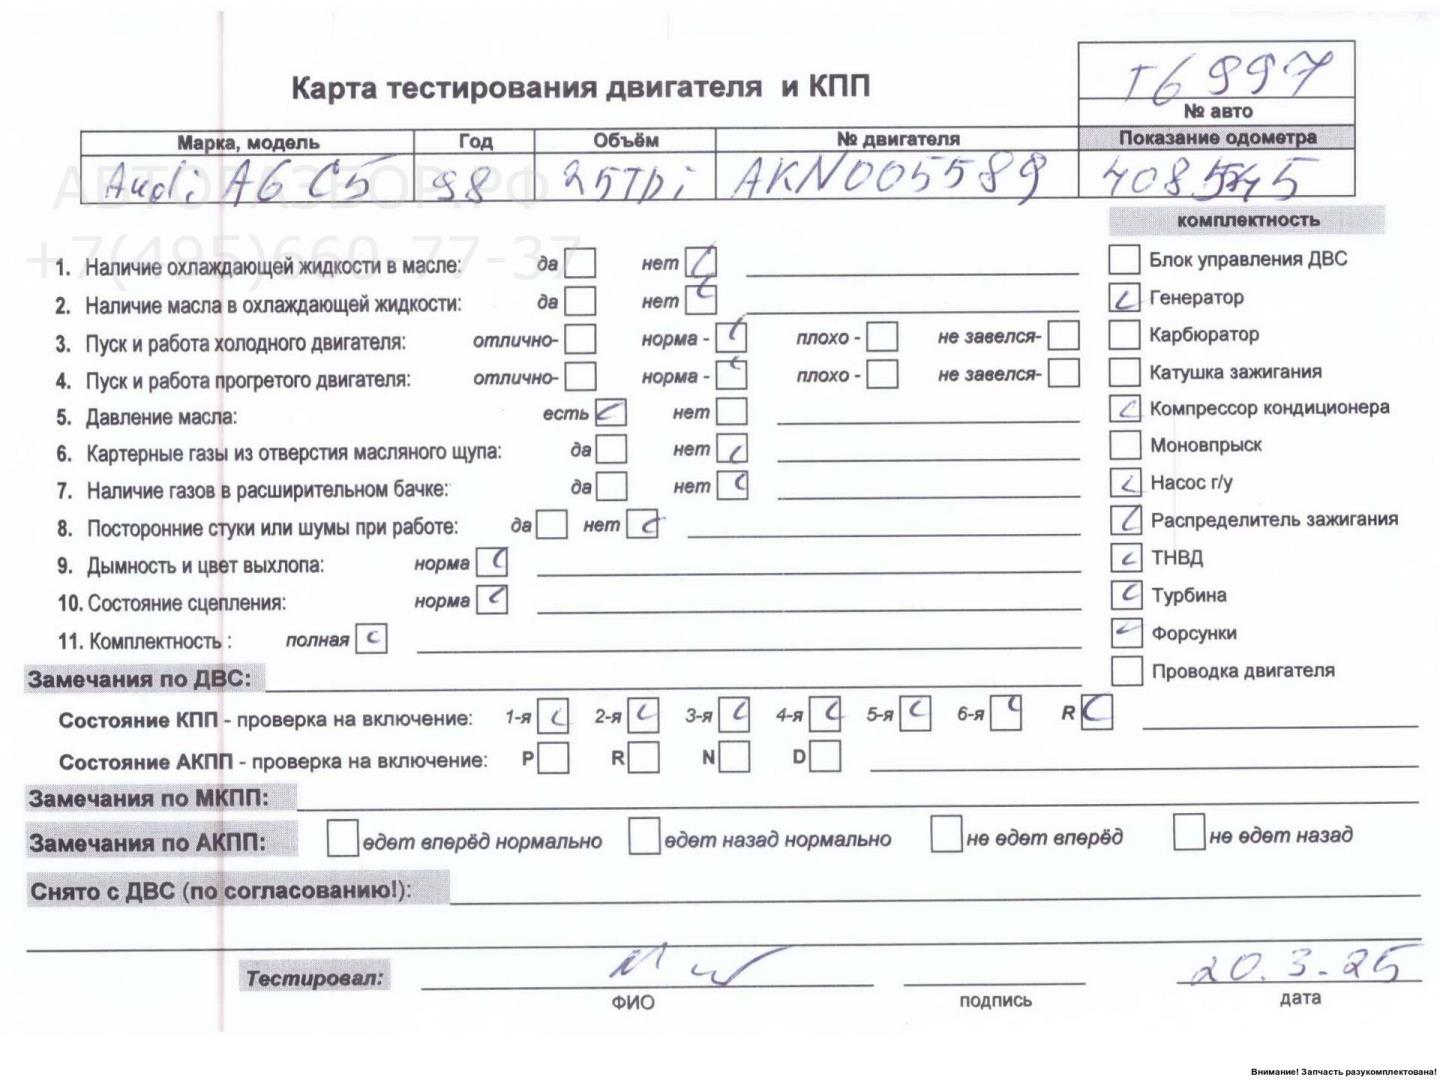 Т6997
Карта тестирования двигателя и КПП
№ авто
Марка, модель Год Объём № двигателя Показание одометра
Audi A6 C5 98 25TDi AKN005589
АВТОРАЗБОР.РФ
комплектность
+7(495)660-77-37
1. Наличие охлаждающей жидкости в масле: да нет Блок управления ДВС
2. Наличие масла в охлаждающей жидкости: да нет Генератор
3. Пуск и работа холодного двигателя: отлично- норма - плохо - не завелся- Карбюратор
4. Пуск и работа прогретого двигателя: отлично- норма - плохо - не завелся- Катушка зажигания
5. Давление масла: есть нет Компрессор кондиционера
6. Картерные газы из отверстия масляного щупа: да нет Моновпрыск
7. Наличие газов в расширительном бачке: да нет Насос г/у
8. Посторонние стуки или шумы при работе: да нет Распределитель зажигания
9. Дымность и цвет выхлопа: норма ТНВД
10. Состояние сцепления: норма Турбина
11. Комплектность : полная Форсунки
Замечания по ДВС: Проводка двигателя
Состояние КПП - проверка на включение: 1-я 2-я 3-я 4-я 5-я 6-я R
Состояние АКПП - проверка на включение: P R N D
Замечания по МКПП:
Замечания по АКПП: едет вперёд нормально едет назад нормально не едет вперёд не едет назад
Снято с ДВС (по согласованию!):
Тестировал: 20.3.25
ФИО подпись дата
Внимание! Запчасть разукомплектована!